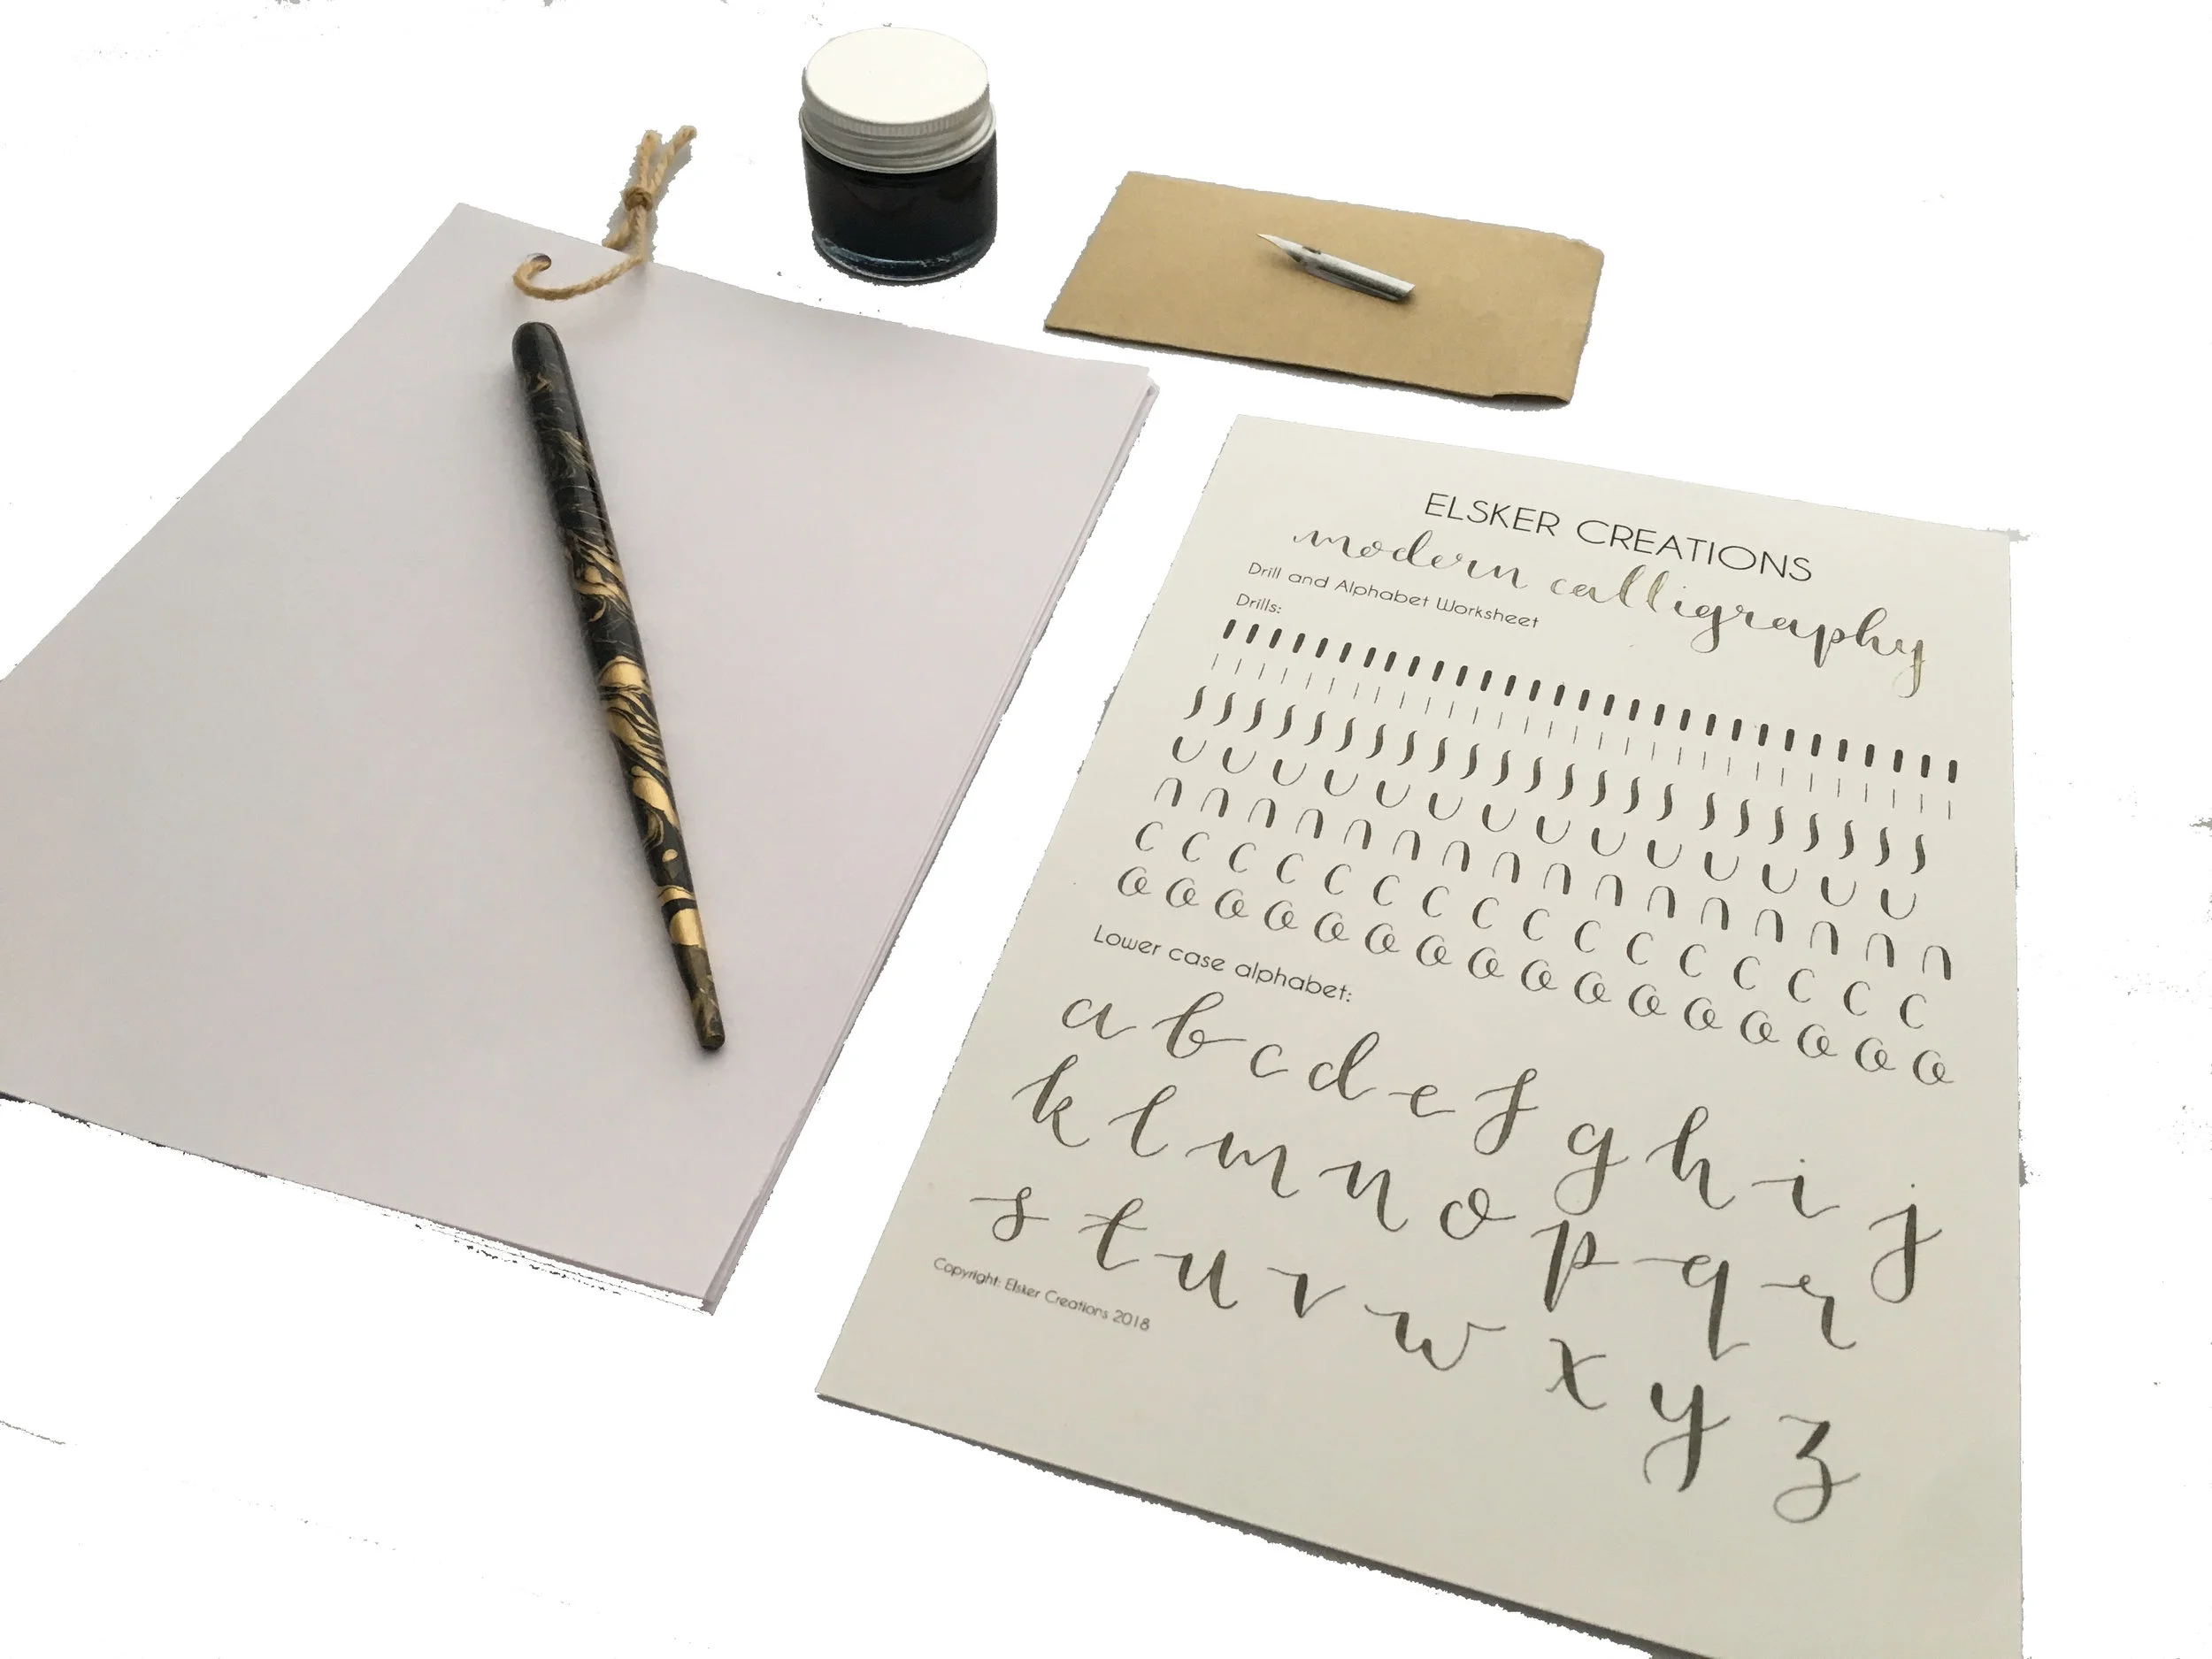 ELSKER CREATIONS
modern calligraphy
Drill and Alphabet Worksheet
Drills:
Lower case alphabet:
a b c d e f g h i j
k l m n o p q r
s t u v w x y z
Copyright: Elsker Creations 2018